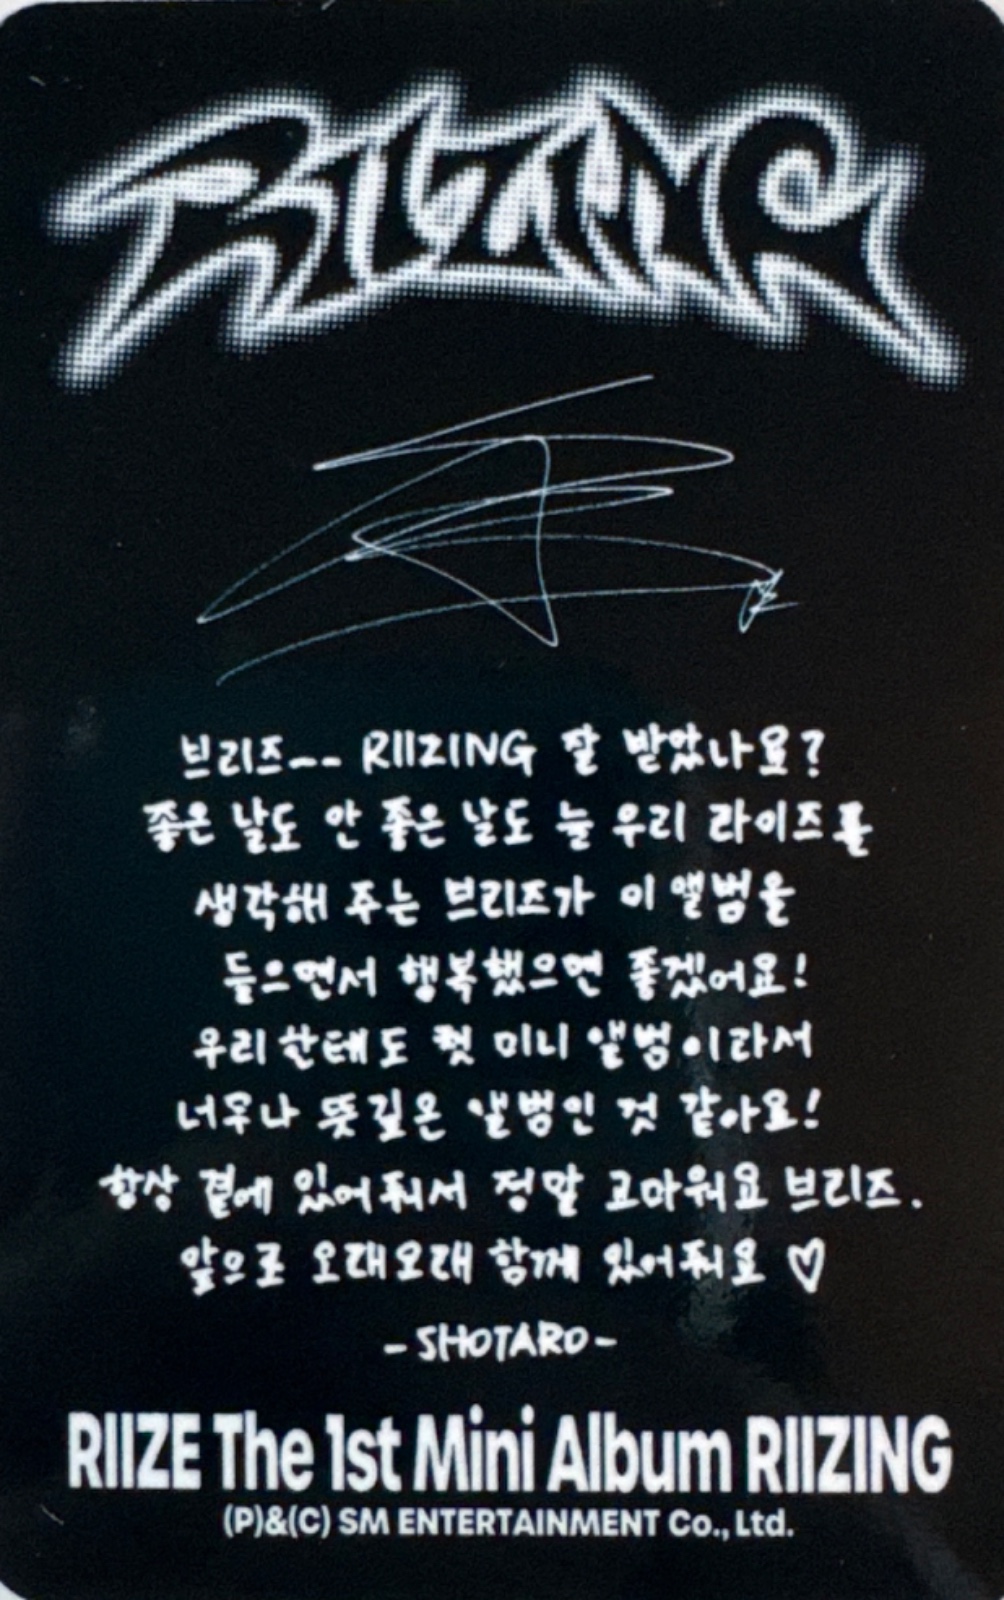 RIIZING
브리즈~~ RIIZING 잘 받았나요?
좋은 날도 안 좋은 날도 늘 우리 라이즈를
생각해 주는 브리즈가 이 앨범을
들으면서 행복했으면 좋겠어요!
우리한테도 첫 미니 앨범이라서
너무나 뜻깊은 앨범인 것 같아요!
항상 곁에 있어줘서 정말 고마워요 브리즈.
앞으로 오래오래 함께 있어줘요 ♡
-SHOTARO-
RIIZE The 1st Mini Album RIIZING
(P)&(C) SM ENTERTAINMENT Co., Ltd.